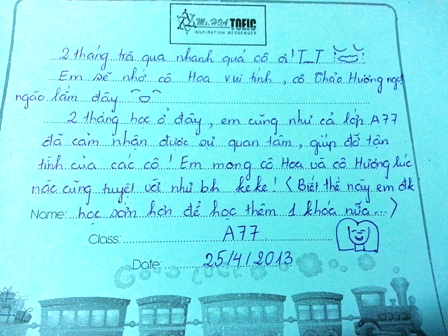 Ms. HOA TOEIC
INSPIRATION MESSENGER
2 tháng trôi qua nhanh quá cô ơi! T_T
Em sẽ nhớ cô Hoa vui tính, cô Thảo Hường ngọt
ngào lắm đấy
2 tháng học ở đây, em cũng như cả lớp A77
đã cảm nhận được sự quan tâm, giúp đỡ tận
tình của các cô! Em mong cô Hoa và cô Hường lúc
nào cũng tuyệt vời như bh keke! (Biết thế này em đk
Name: học sớm hơn để học thêm 1 khóa nữa...)
Class: A77
Date: 25/4/2013